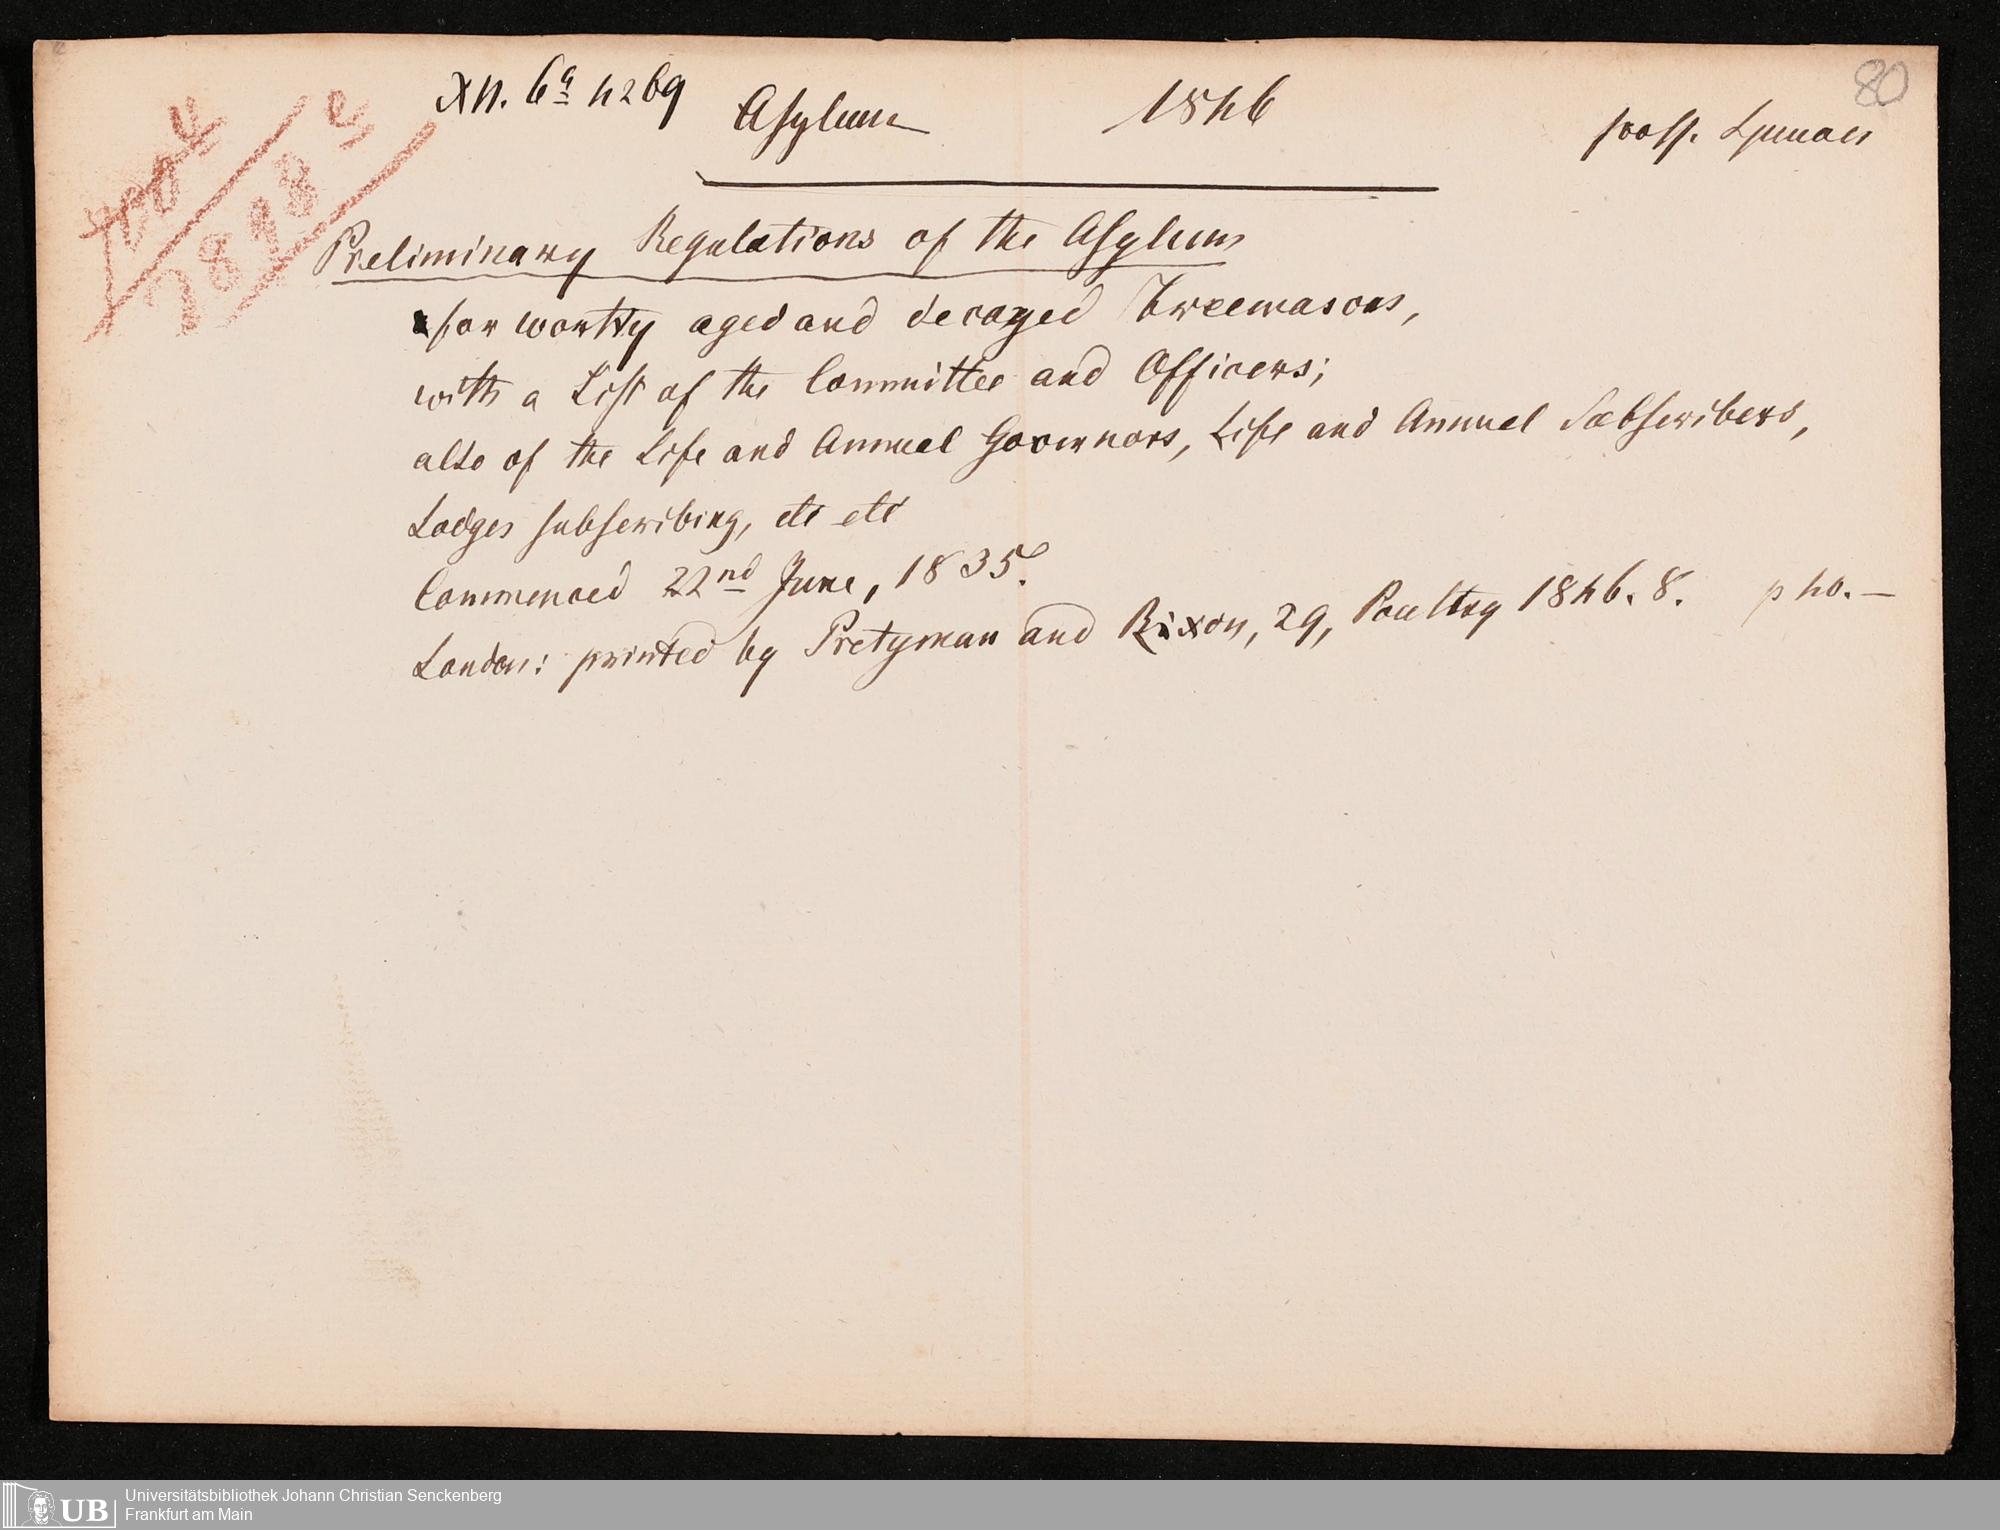 80
XII. 6a 4269 Asylum 1846
Preliminary Regulations of the Asylum
for worthy aged and decayed Freemasons,
with a List of the Committee and Officers;
also of the Life and Annual Governors, Life and Annual Subscribers,
Lodges subscribing, etc etc
Commenced 22nd June, 1835.
London: printed by Pretyman and Rixon, 29, Poultry 1846. 8. p 40.—
UB Universitätsbibliothek Johann Christian Senckenberg
Frankfurt am Main